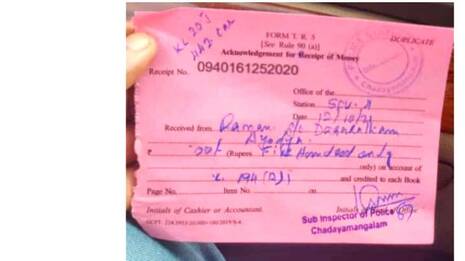 KL 20J
FORM T. R. 5
DUPLICATE
[See Rule 90 (a)]
Acknowledgement for Receipt of Money
Receipt No. 0940161252020
Office of the
Station
Date 12/10/21
Received from Raman S/o
Ayodya
₹ (Rupees Five Hundred only
only) on account of
and credited to each Book
Page No. Item No on
Initials of Cashier or Accountant. Initials of
Sub Inspector of Police
Chadayamangalam